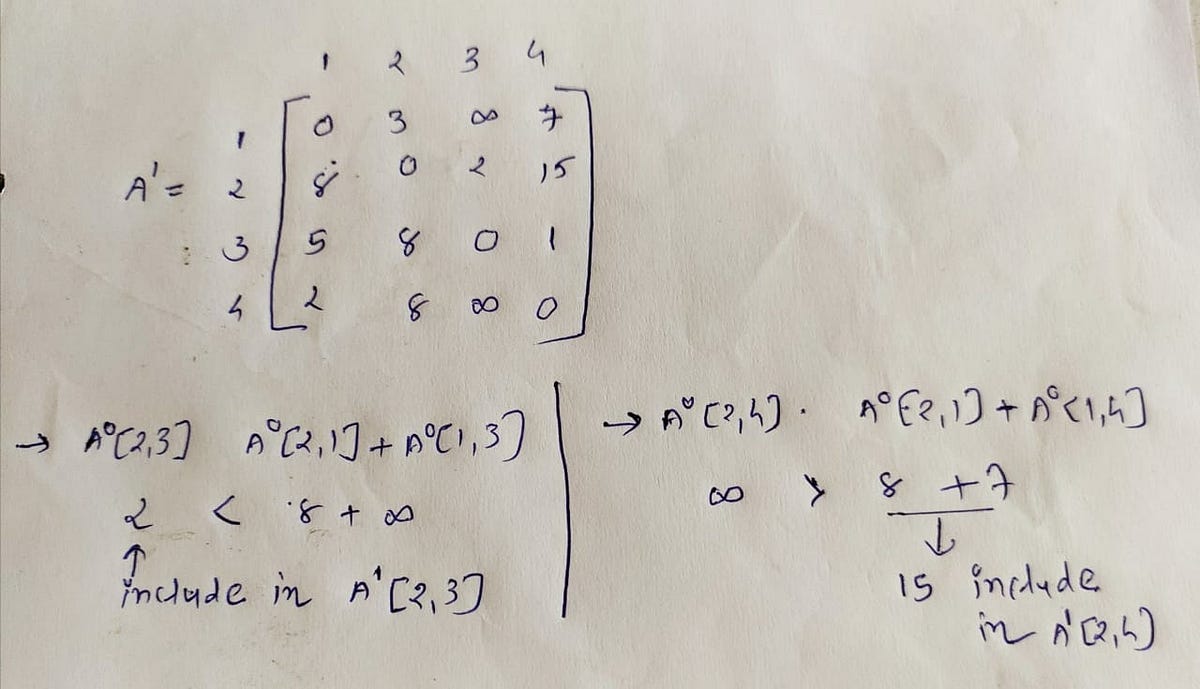 1 2 3 4
1 0 3 ∞ 7
A' = 2 8 0 2 15
3 5 8 0 1
4 2 8 ∞ 0
→ A⁰[2,3] A⁰[2,1] + A⁰[1,3]
2 < 8 + ∞
↑
include in A'[2,3]
→ A⁰[2,4] . A⁰[2,1] + A⁰[1,4]
∞ > 8 + 7
↓
15 include
in A'[2,4]